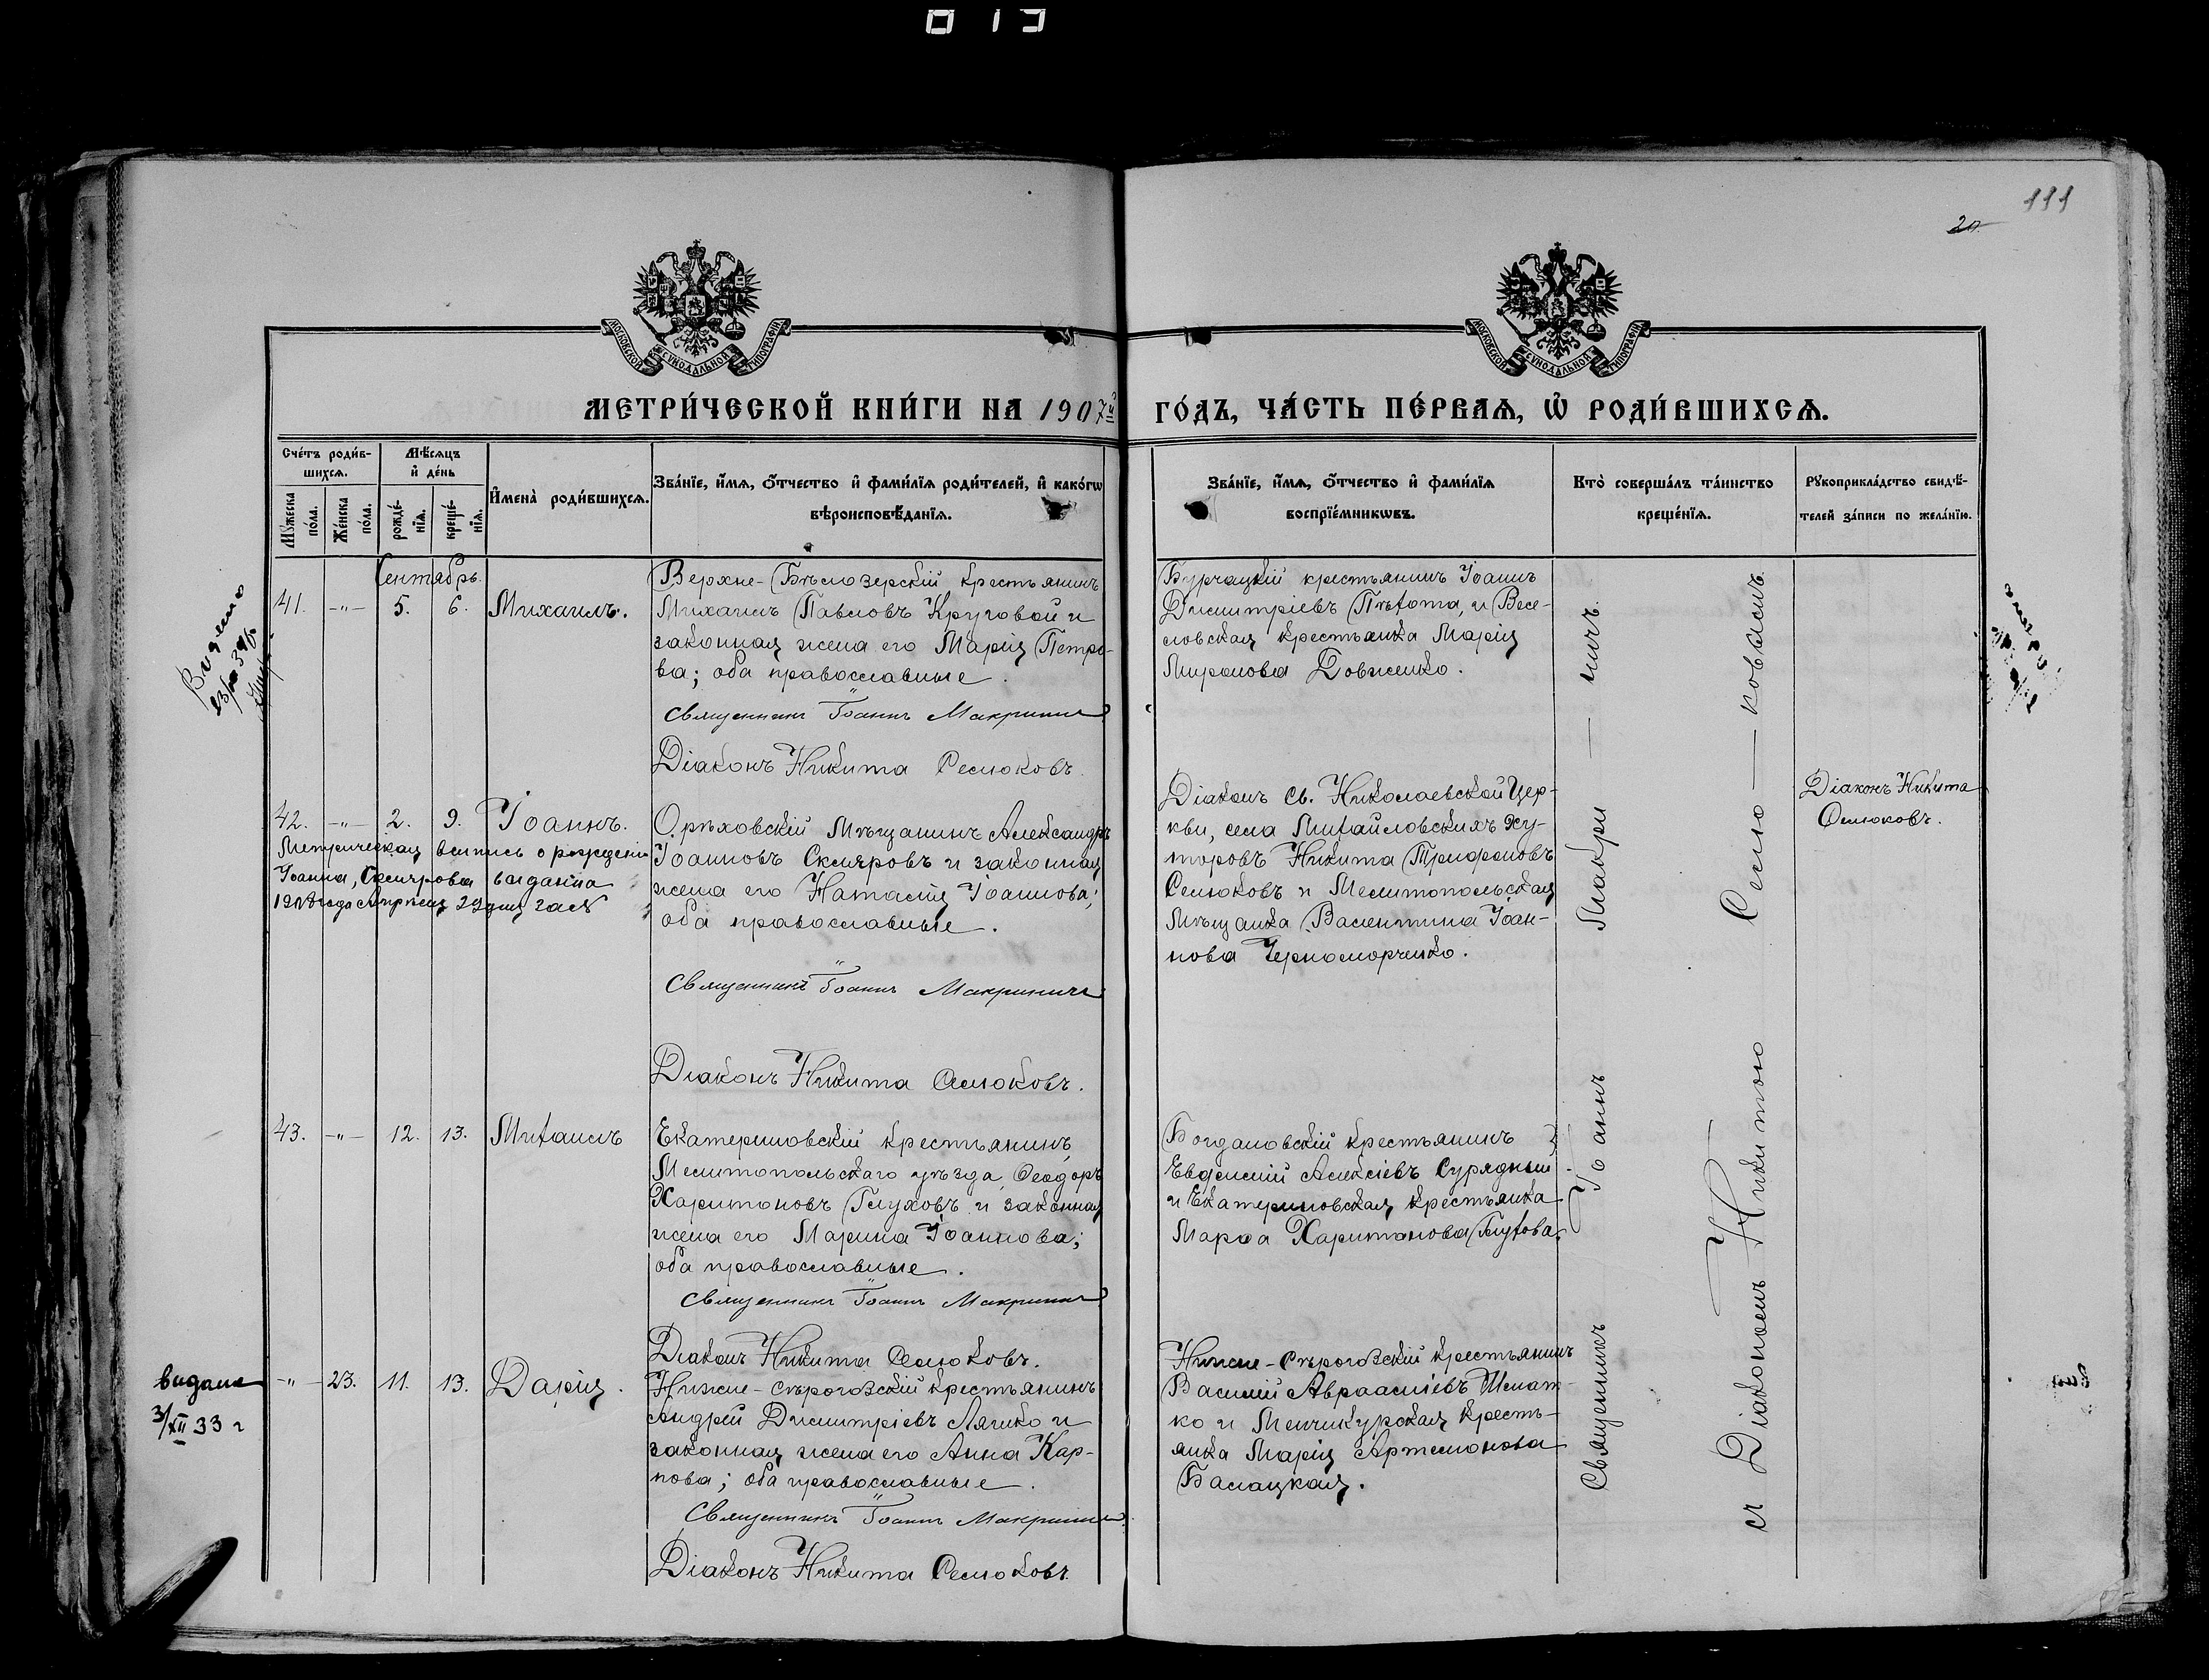 013
111
20
МОСКОВСКОЙ СѴНОДАЛЬНОЙ ТИПОГРАФІИ
МОСКОВСКОЙ СѴНОДАЛЬНОЙ ТИПОГРАФІИ
МЕТРИ́ЧЕСКОЙ КНИ́ГИ НА 1907й ГО́ДЪ, ЧА́СТЬ ПЕ́РВАѦ, Ѡ҆ РОДИ́ВШИХСѦ.
Сче́тъ роди́в-
шихсѧ.
Мꙋ́жеска по́ла.
Же́нска по́ла.
Мѣ́сѧцъ
и҆ де́нь
рожде́-
нїѧ.
креще́-
нїѧ.
И҆мена̀ роди́вшихсѧ.
Зва́нїе, и҆́мѧ, ѻ҆́тчество и҆ фами́лїѧ роди́телей, и҆ како́гѡ
вѣроисповѣ́данїѧ.
Зва́нїе, и҆́мѧ, ѻ҆́тчество и҆ фами́лїѧ
воспрїе́мникѡвъ.
Кто̀ соверша́лъ та́инство
креще́нїѧ.
Рꙋкоприкла́дство свидѣ́-
телей за́писи по жела́нїю.
Сентябрь.
41. -"- 5. 6. Михаилъ.
Верхне-Бѣлозерскій крестьянинъ
Михаилъ Павловъ Круговой и
законная жена его Марія Петро-
ва; оба православные.
Священникъ Іоаннъ Макринич
Діаконъ Никита Селюковъ.
Бурчацкій крестьянинъ Іоаннъ
Димитріевъ Пѣхота, и Весе-
ловская крестьянка Марія
Миронова Довженко.
42. -"- 2. 9. Іоаннъ.
Метрическая выпись о рождении
Іоанна, Склярова выдана
1908 года апреля 29 дня
Орѣховскій мѣщанинъ Александръ
Іоанновъ Скляровъ и законная
жена его Наталія Іоаннова;
оба православные.
Священникъ Іоаннъ Макринич
Діаконъ Никита Селюковъ.
Діаконъ св. Николаевской Цер-
кви, села Михайловскихъ ху-
торовъ Никита Трифоновъ
Селюковъ и Мелитопольская
мѣщанка Валентина Іоан-
нова Черноморченко.
Діаконъ Никита
Селюковъ.
43. -"- 12. 13. Михаилъ
Екатериновскій крестьянинъ,
Мелитопольскаго уѣзда, Ѳеодоръ
Харитоновъ Глуховъ и законная
жена его Марина Іоаннова;
оба православные.
Священникъ Іоаннъ Макринич
Діаконъ Никита Селюковъ.
Богдановскій крестьянинъ
Евдокмий Алексіевъ Сурядный
и Екатериновская крестьянка
Марѳа Харитонова Глухова.
видана
3/XII 33 г
-"- 23. 11. 13. Дарія.
Нижне-Сѣрогозскій крестьянинъ
Андрей Димитріевъ Лячко и
законная жена его Анна Кар-
пова; оба православные.
Священникъ Іоаннъ Макринич
Діаконъ Никита Селюковъ
Нижне-Сѣрогозскій крестьянинъ
Василій Авраамиевъ Шмат-
ко и Менчикурская кресть-
янка Марія Артемонова
Баладцкая.
Священникъ Іоаннъ Макри — ничъ.
съ Діакономъ Никитою Селю — ковымъ.